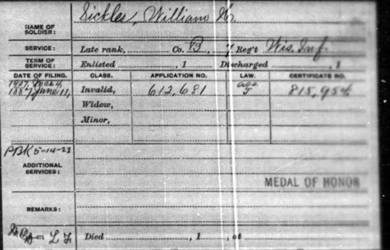 NAME OF SOLDIER: Sickles, William H.
SERVICE: Late rank, Co. B, 7 Reg't Wis. Inf.
TERM OF SERVICE: Enlisted , 1 Discharged , 1
DATE OF FILING. CLASS. APPLICATION NO. LAW. CERTIFICATE NO.
1887 June 11, Invalid, 612,681 815,954
Widow,
Minor,
5-14-23
ADDITIONAL SERVICES:
MEDAL OF HONOR
REMARKS:
Died , 1 , at